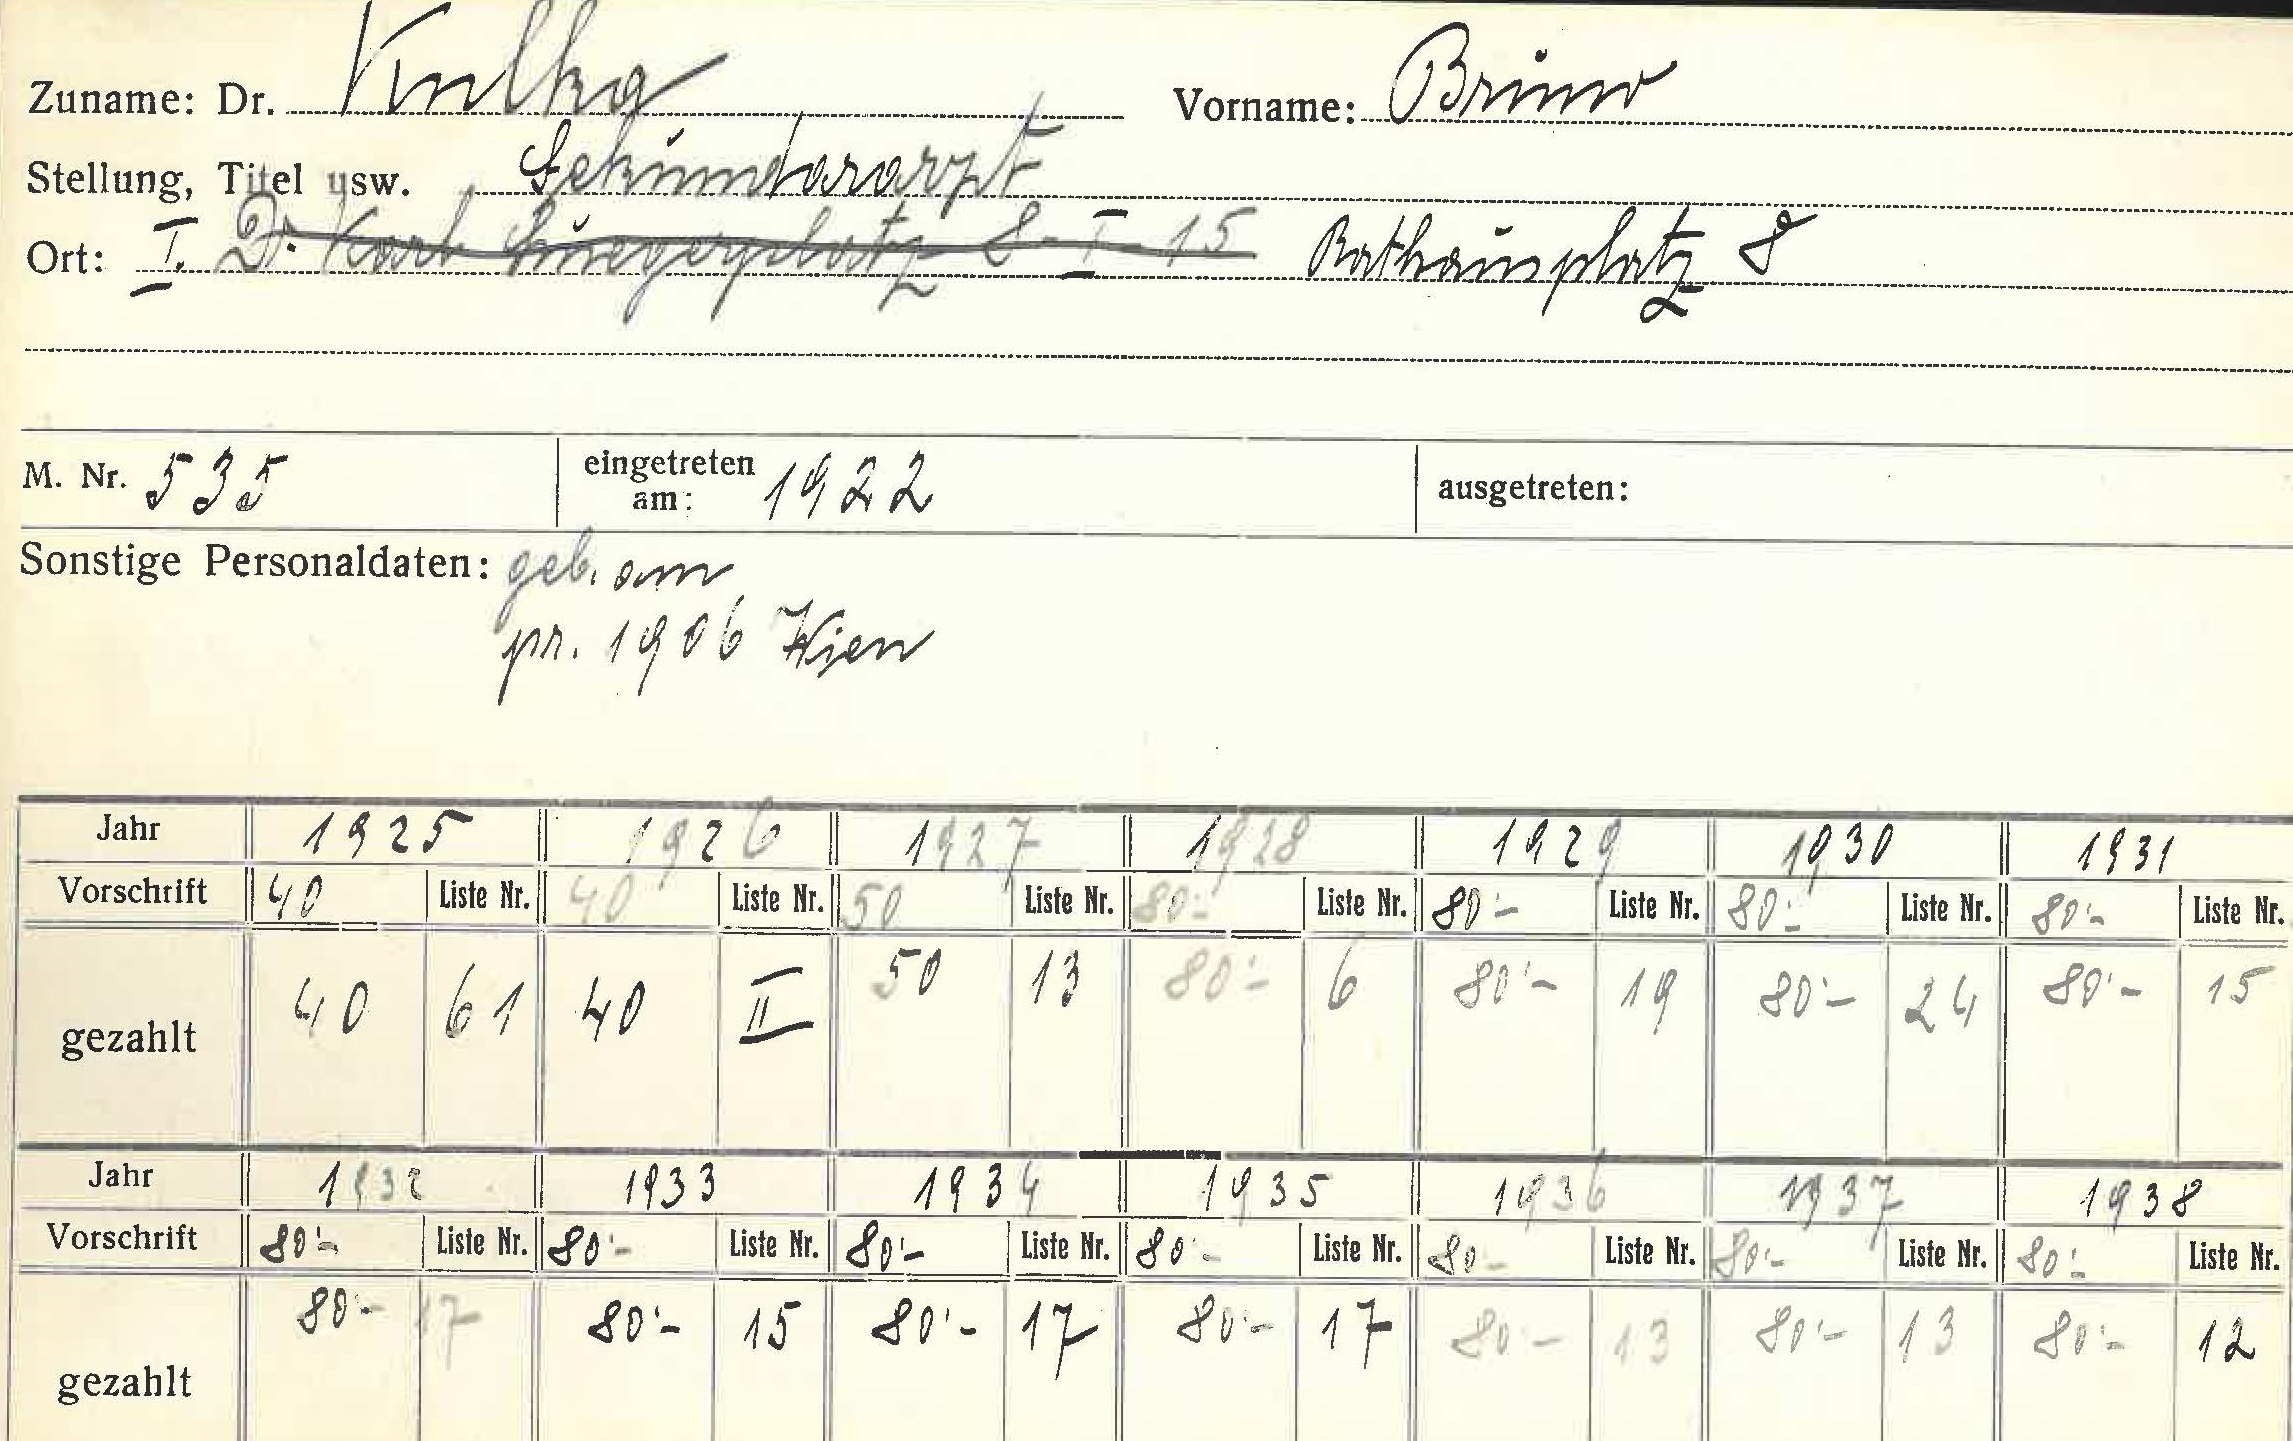 Zuname: Dr. Kulka Vorname: Bruno
Stellung, Titel usw. Sekundararzt
Ort: I. Dr. Karl Luegerplatz 8 - I - 15 Rathausplatz 8
M. Nr. 535 eingetreten am: 1922 ausgetreten:
Sonstige Personaldaten: geb. am
pr. 1906 Wien
Jahr 1925 1926 1927 1928 1929 1930 1931
Vorschrift 40 Liste Nr. 40 Liste Nr. 50 Liste Nr. 80'- Liste Nr. 80'- Liste Nr. 80'- Liste Nr. 80'- Liste Nr.
gezahlt 40 61 40 II 50 13 80'- 6 80'- 19 80'- 24 80'- 15
Jahr 1932 1933 1934 1935 1936 1937 1938
Vorschrift 80'- Liste Nr. 80'- Liste Nr. 80'- Liste Nr. 80'- Liste Nr. 80- Liste Nr. 80'- Liste Nr. 80'- Liste Nr.
gezahlt 80'- 17 80'- 15 80'- 17 80'- 17 80'- 13 80'- 13 80'- 12